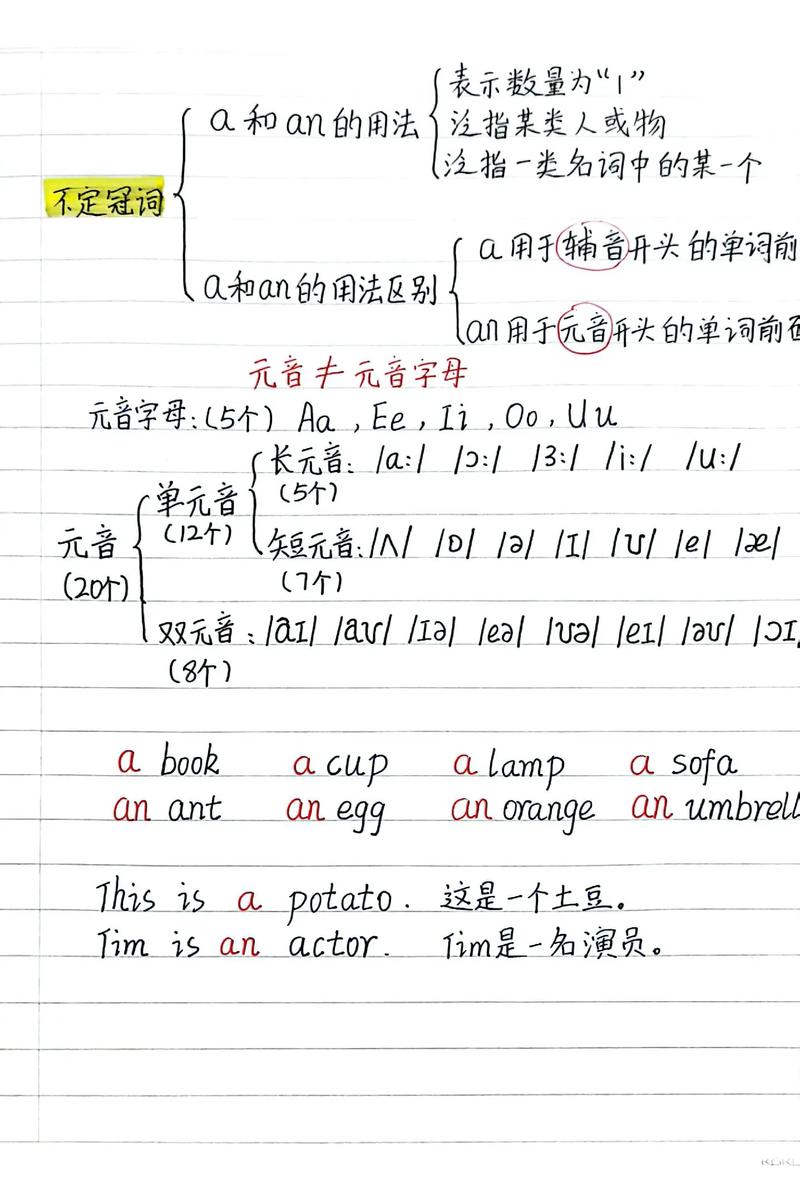 表示数量为“1”
a 和 an 的用法
泛指某类人或物
泛指一类名词中的某一个
不定冠词
a 用于辅音开头的单词前
a和an的用法区别
an 用于元音开头的单词前面
元音 ≠ 元音字母
元音字母:(5个) Aa , Ee , Ii , Oo , Uu
长元音: /a:/ /ɔ:/ /ɜ:/ /i:/ /u:/
单元音 (5个)
(12个)
元音 短元音: /ʌ/ /ɒ/ /ə/ /ɪ/ /ʊ/ /e/ /æ/
(20个) (7个)
双元音: /aɪ/ /aʊ/ /ɪə/ /eə/ /ʊə/ /eɪ/ /əʊ/ /ɔɪ
(8个)
a book a cup a lamp a sofa
an ant an egg an orange an umbrell
This is a potato. 这是一个土豆。
Tim is an actor. Tim是一名演员。